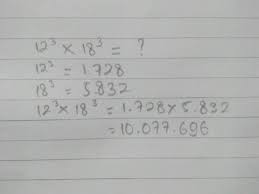 12³ × 18³ = ?
12³ = 1.728
18³ = 5.832
12³ × 18³ = 1.728 × 5.832
= 10.077.696